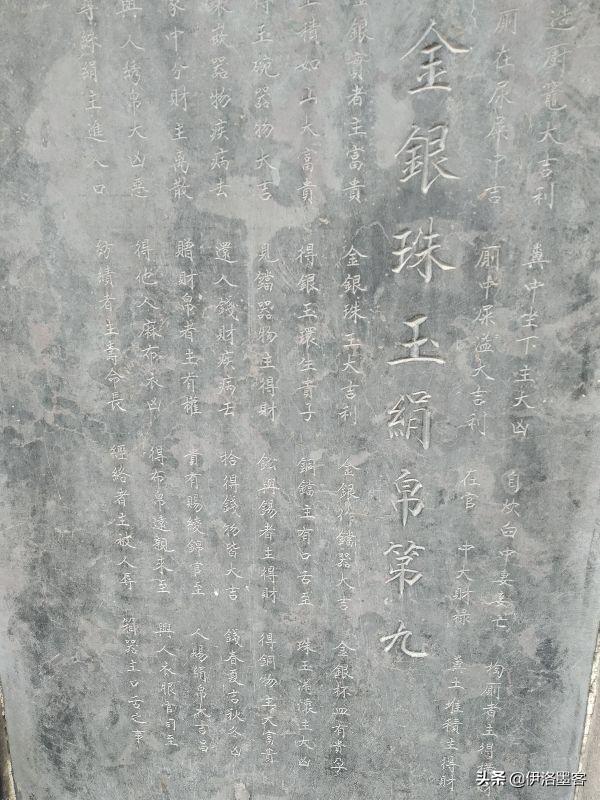 造厨竈大吉利 糞中坐下主大凶 自炊臼中妻妾亡 掏廁者主得
廁在尿屎中吉 廁中屎溢大吉利 在官 中大財禄 糞土堆積主得財
金銀珠玉絹帛第九
銀寶者主富貴 金銀珠玉大吉利 金銀作鐵器大吉 金銀杯皿有貴子
積如山大富貴 得銀玉環生貴子 銅鐺主有口舌至 珠玉滿懷主大凶
得玉碗器物大吉 見鐺器物主得財 鈆與錫者主得財 得銅物主大富貴
器物疾病去 還人錢財疾病去 拾得錢物皆大吉 錢春夏吉秋冬凶
家中分財主离散 贈財帛者主有權 貴有賜綾錦官至 人賜絹帛大吉昌
與人綉帛大凶惡 得他人麻布衣凶 得布帛遠親來至 與人衣服官司至
尋絲絹主進人口 紡績者主壽命長 經絡者主被人辱 器主口舌之事
头条 @伊洛墨客